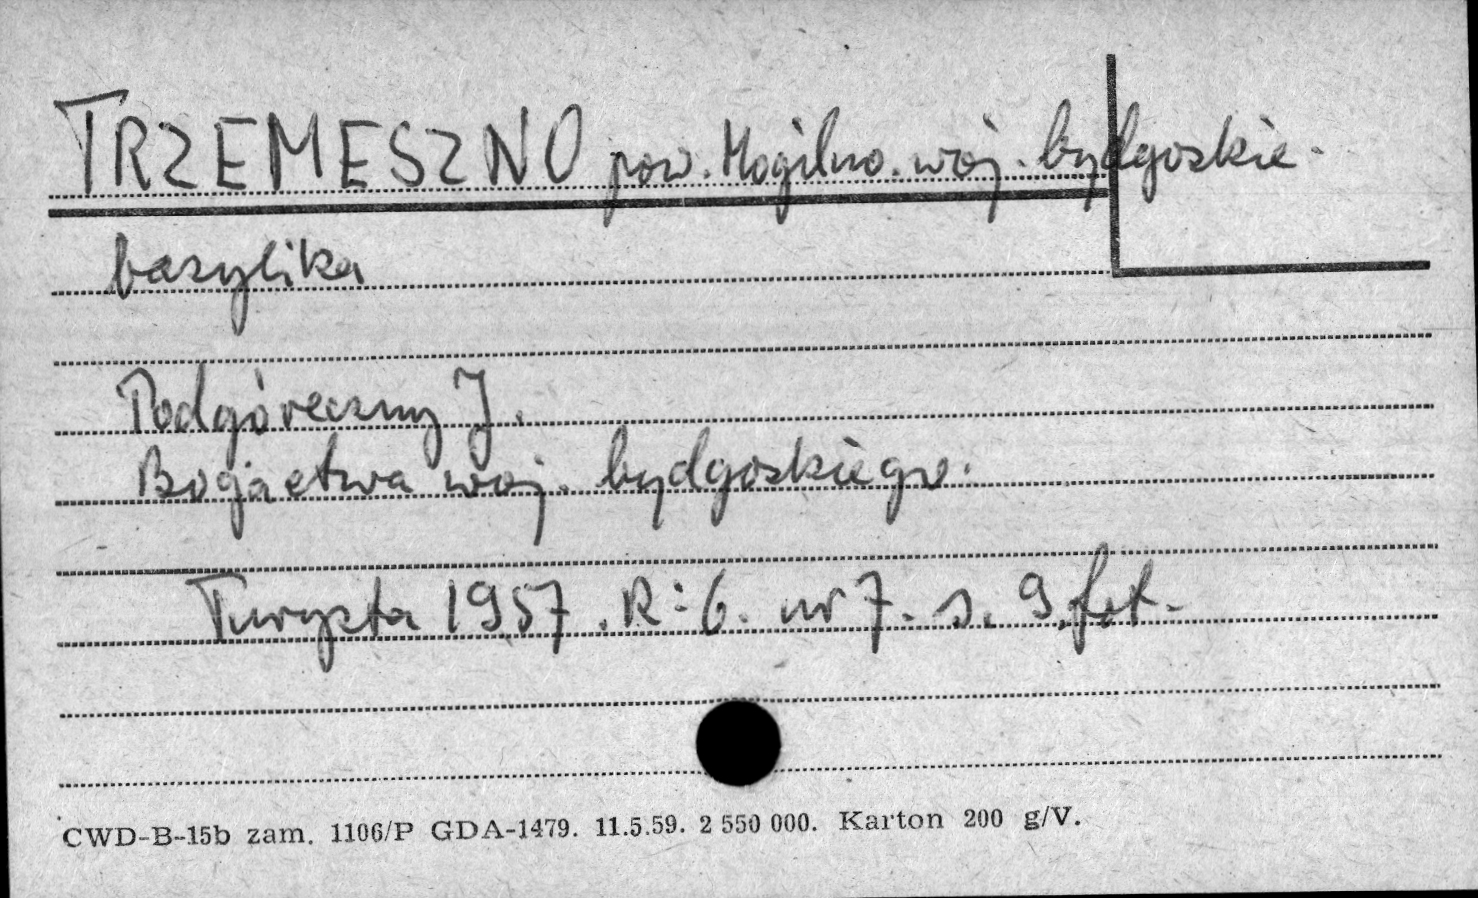 TRZEMESZNO pow. Mogilno. woj. bydgoskie.
bazylika
Podgóreczny J.
Bogactwa woj. bydgoskiego.
Turysta 1957. R: 6. nr 7. s. 9. fot.
CWD-B-15b zam. 1106/P GDA-1479. 11.5.59. 2 550 000. Karton 200 g/V.